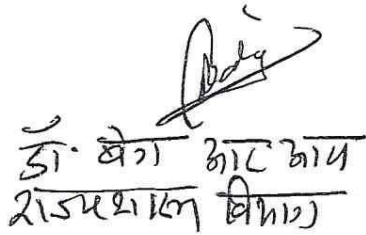 डॉ. बेग आर आय
राज्यशास्त्र विभाग